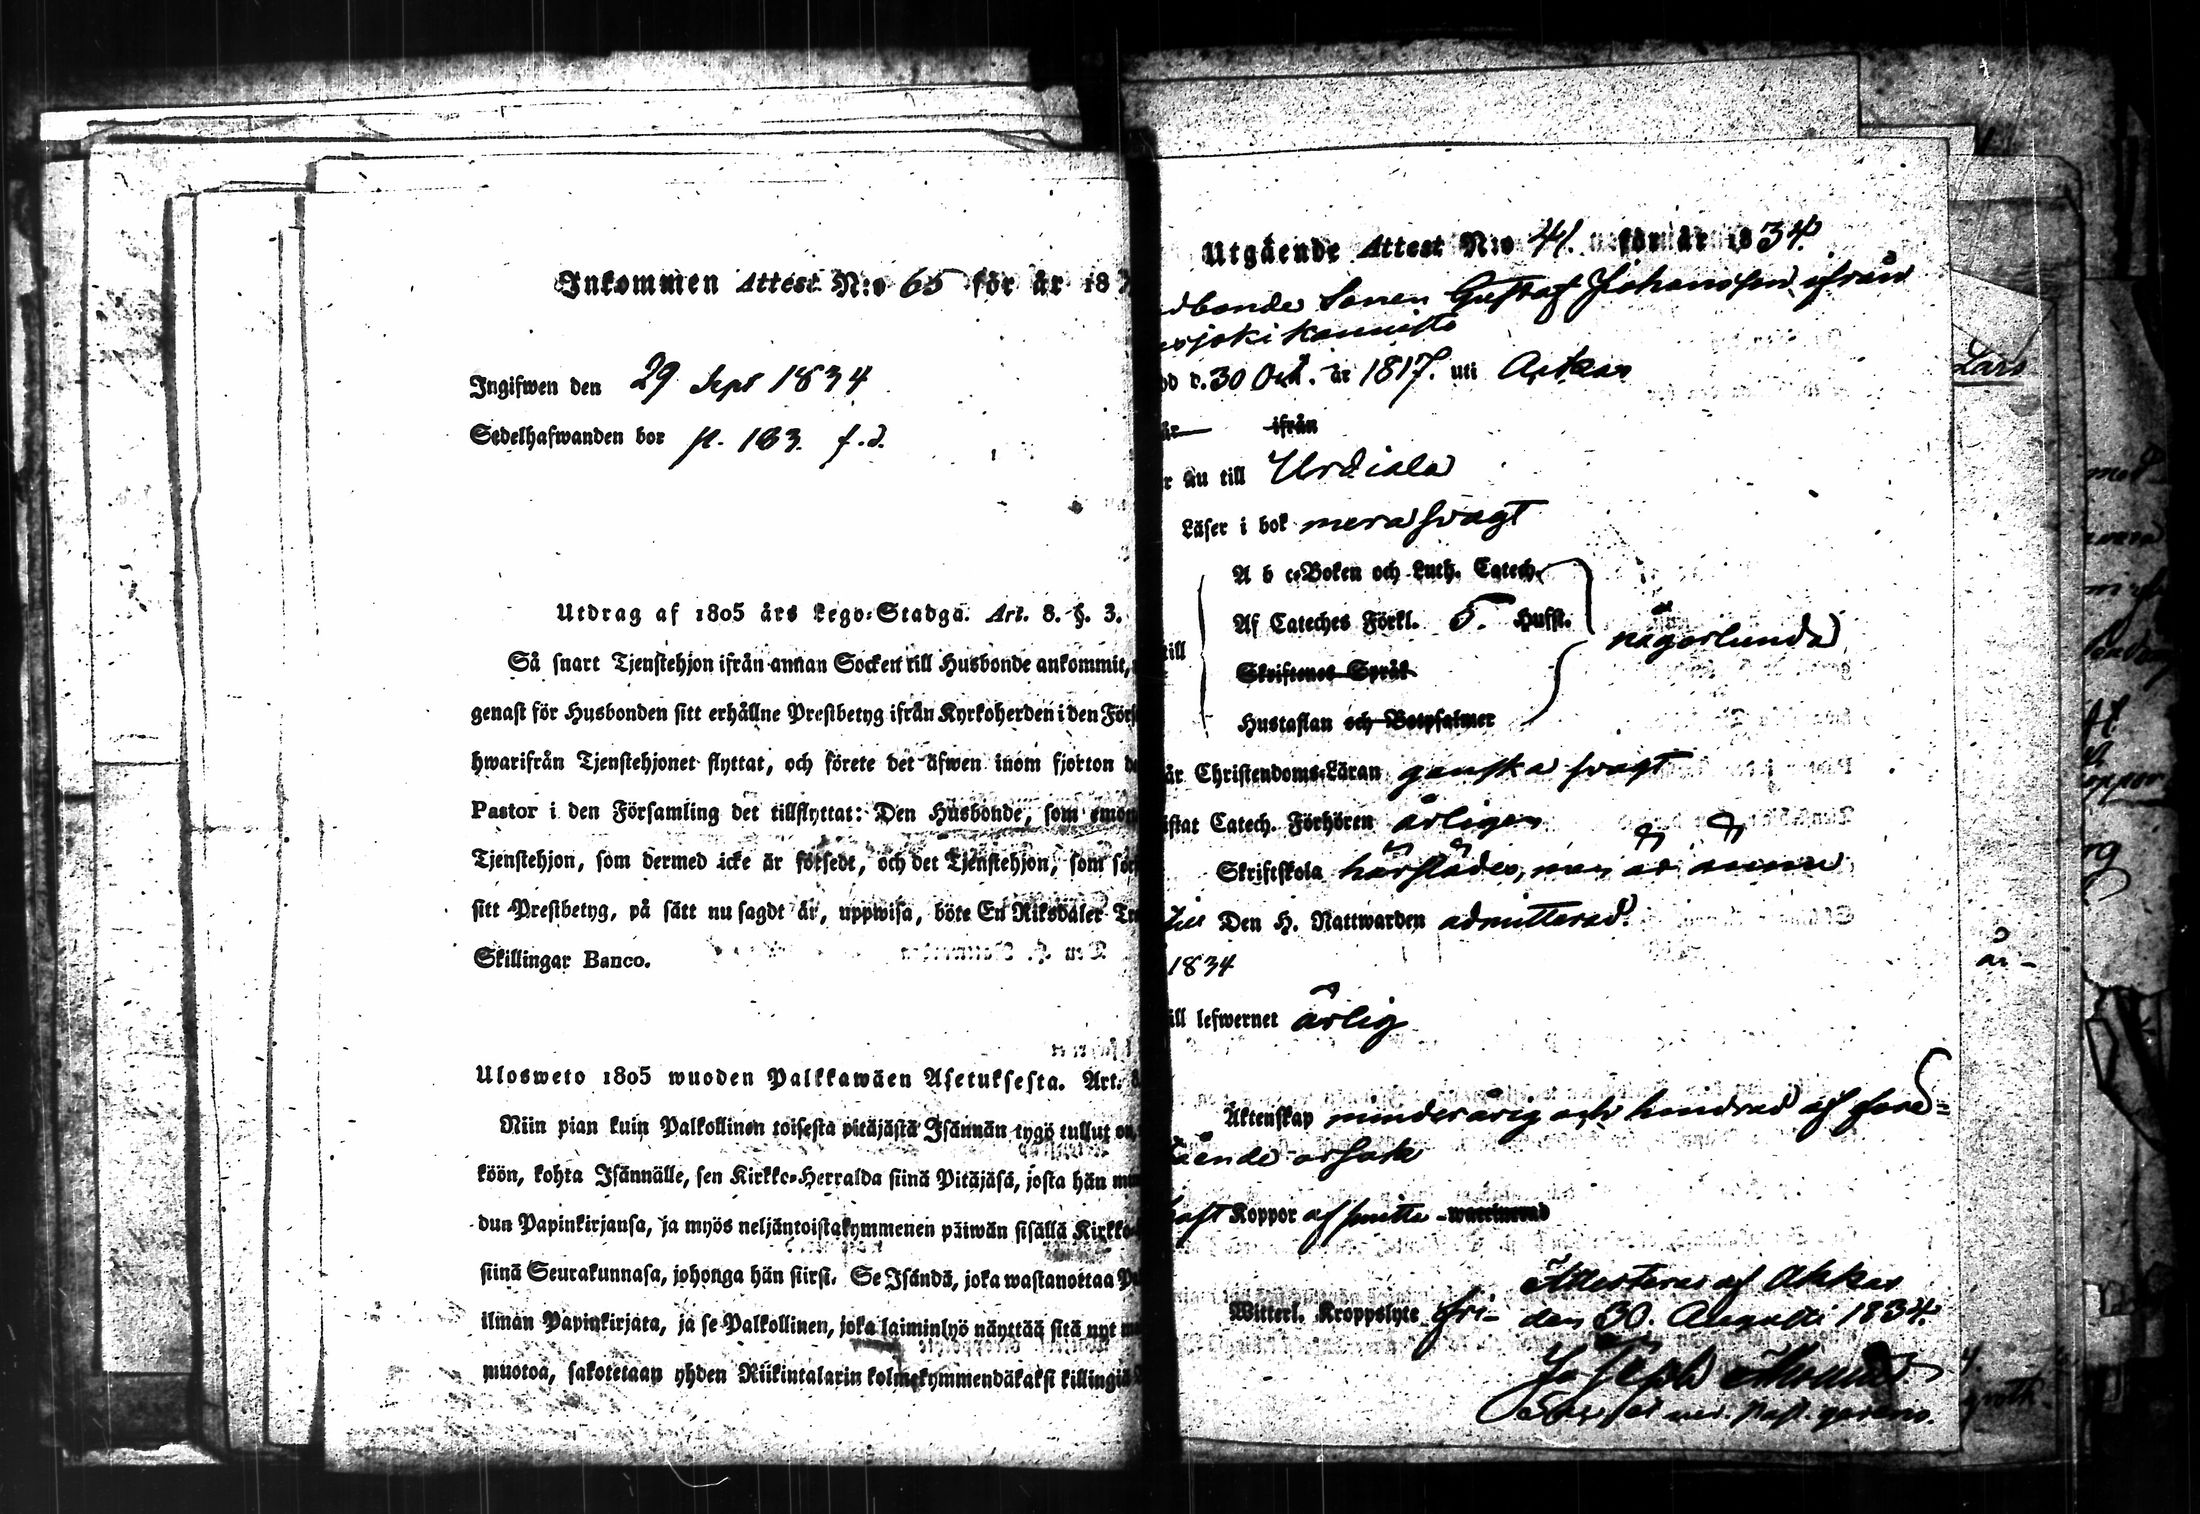 Inkommen Attest N:o 65 för år 18
Ingifwen den 29 Sept 1834
Sedelhafwanden bor p. 183. f.d.
Utdrag af 1805 års Lego-Stadga. Art. 8. §. 3.
Så snart Tjenstehjon ifrån annan Socken till Husbonde ankommit,
genast för Husbonden sitt erhållne Prestbetyg ifrån Kyrkoherden i den Förs
hwarifrån Tjenstehjonet flyttat, och förete det äfwen inom fjorton d
Pastor i den Församling det tillflyttat: Den Husbonde, som emot
Tjenstehjon, som dermed icke är försedt, och det Tjenstehjon, som för
sitt Prestbetyg, på sätt nu sagdt är, uppwisa, böte En Riksdaler Tr
Skillingar Banco.
Ulosweto 1805 wuoden Palkkawäen Asetuksesta. Art. 8
Niin pian kuin Palkollinen toisesta pitäjästä Isännän tygö tullut on,
köön, kohta Isännälle, sen Kirkko-Herralda siinä Pitäjäsä, josta hän mu
dun Papinkirjansa, ja myös neljäntoistakymmenen päiwän sisällä Kirkko
siinä Seurakunnasa, johonga hän siirsi. Se Isändä, joka wastanottaa P
ilman Papinkirjata, ja se Palkollinen, joka laiminlyö näyttää sitä nyt m
muotoa, sakotetaan yhden Riikintalarin kolmekymmendäkaksi killingiä
Utgående Attest N:o 41. för år 1834.
dbonde Sonen Gustaf Johansson ifrån
ojoki Kannisto
d. 30 Oct. år 1817. uti Ackas
är ifrån
r nu till Urdiala
Läser i bok mera svagt
A b c-Boken och Luth. Catech.
Af Cateches Förkl. 5. Hufst.
till någorlunda
Skriftenes Språk
Hustaflan och Botpsalmer
är Christendoms-Läran ganska svagt
istat Catech. Förhören årligen
Skriftskola härstädes, men är ännu
Den H. Nattwarden admitterad.
1834
ill lefwernet ärlig
Äktenskap minderårig och hindrad af före=
ående orsak
haft Koppor af smitta waccinerad
Attesteras af Akkas
Witterl. Kroppslyte fri- den 30. Augusti 1834.
Joseph